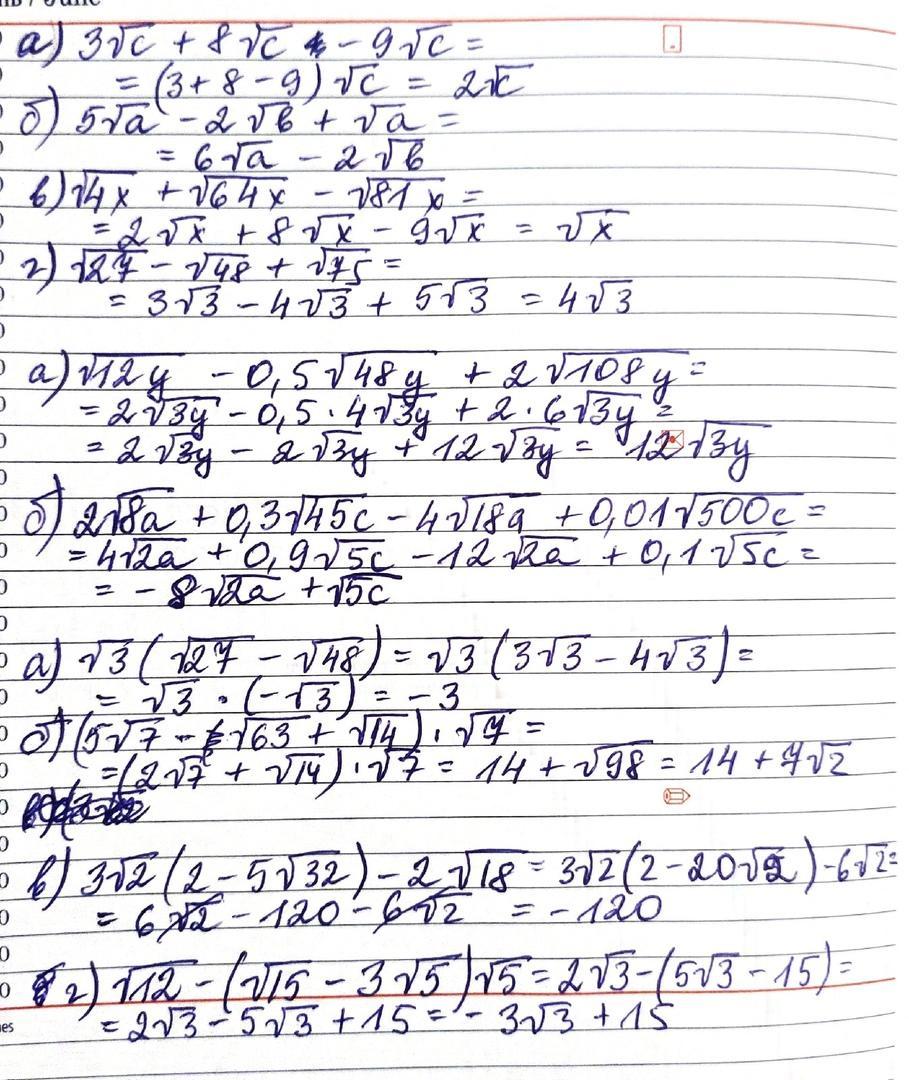 а) 3√c + 8√c - 9√c =
= (3 + 8 - 9) √c = 2√c
б) 5√a - 2√b + √a =
= 6√a - 2√b
в) √4x + √64x - √81x =
= 2√x + 8√x - 9√x = √x
г) √27 - √48 + √75 =
= 3√3 - 4√3 + 5√3 = 4√3
а) √12y - 0,5√48y + 2√108y =
= 2√3y - 0,5 · 4√3y + 2 · 6√3y =
= 2√3y - 2√3y + 12√3y = 12√3y
б) 2√8a + 0,3√45c - 4√18a + 0,01√500c =
= 4√2a + 0,9√5c - 12√2a + 0,1√5c =
= - 8√2a + √5c
а) √3 (√27 - √48) = √3 (3√3 - 4√3) =
= √3 · (-√3) = - 3
б) (5√7 - √63 + √14) · √7 =
= (2√7 + √14) · √7 = 14 + √98 = 14 + 7√2
в) 3√2 (2 - 5√32) - 2√18 = 3√2 (2 - 20√2) - 6√2 =
= 6√2 - 120 - 6√2 = - 120
г) √12 - (√15 - 3√5)√5 = 2√3 - (5√3 - 15) =
= 2√3 - 5√3 + 15 = - 3√3 + 15